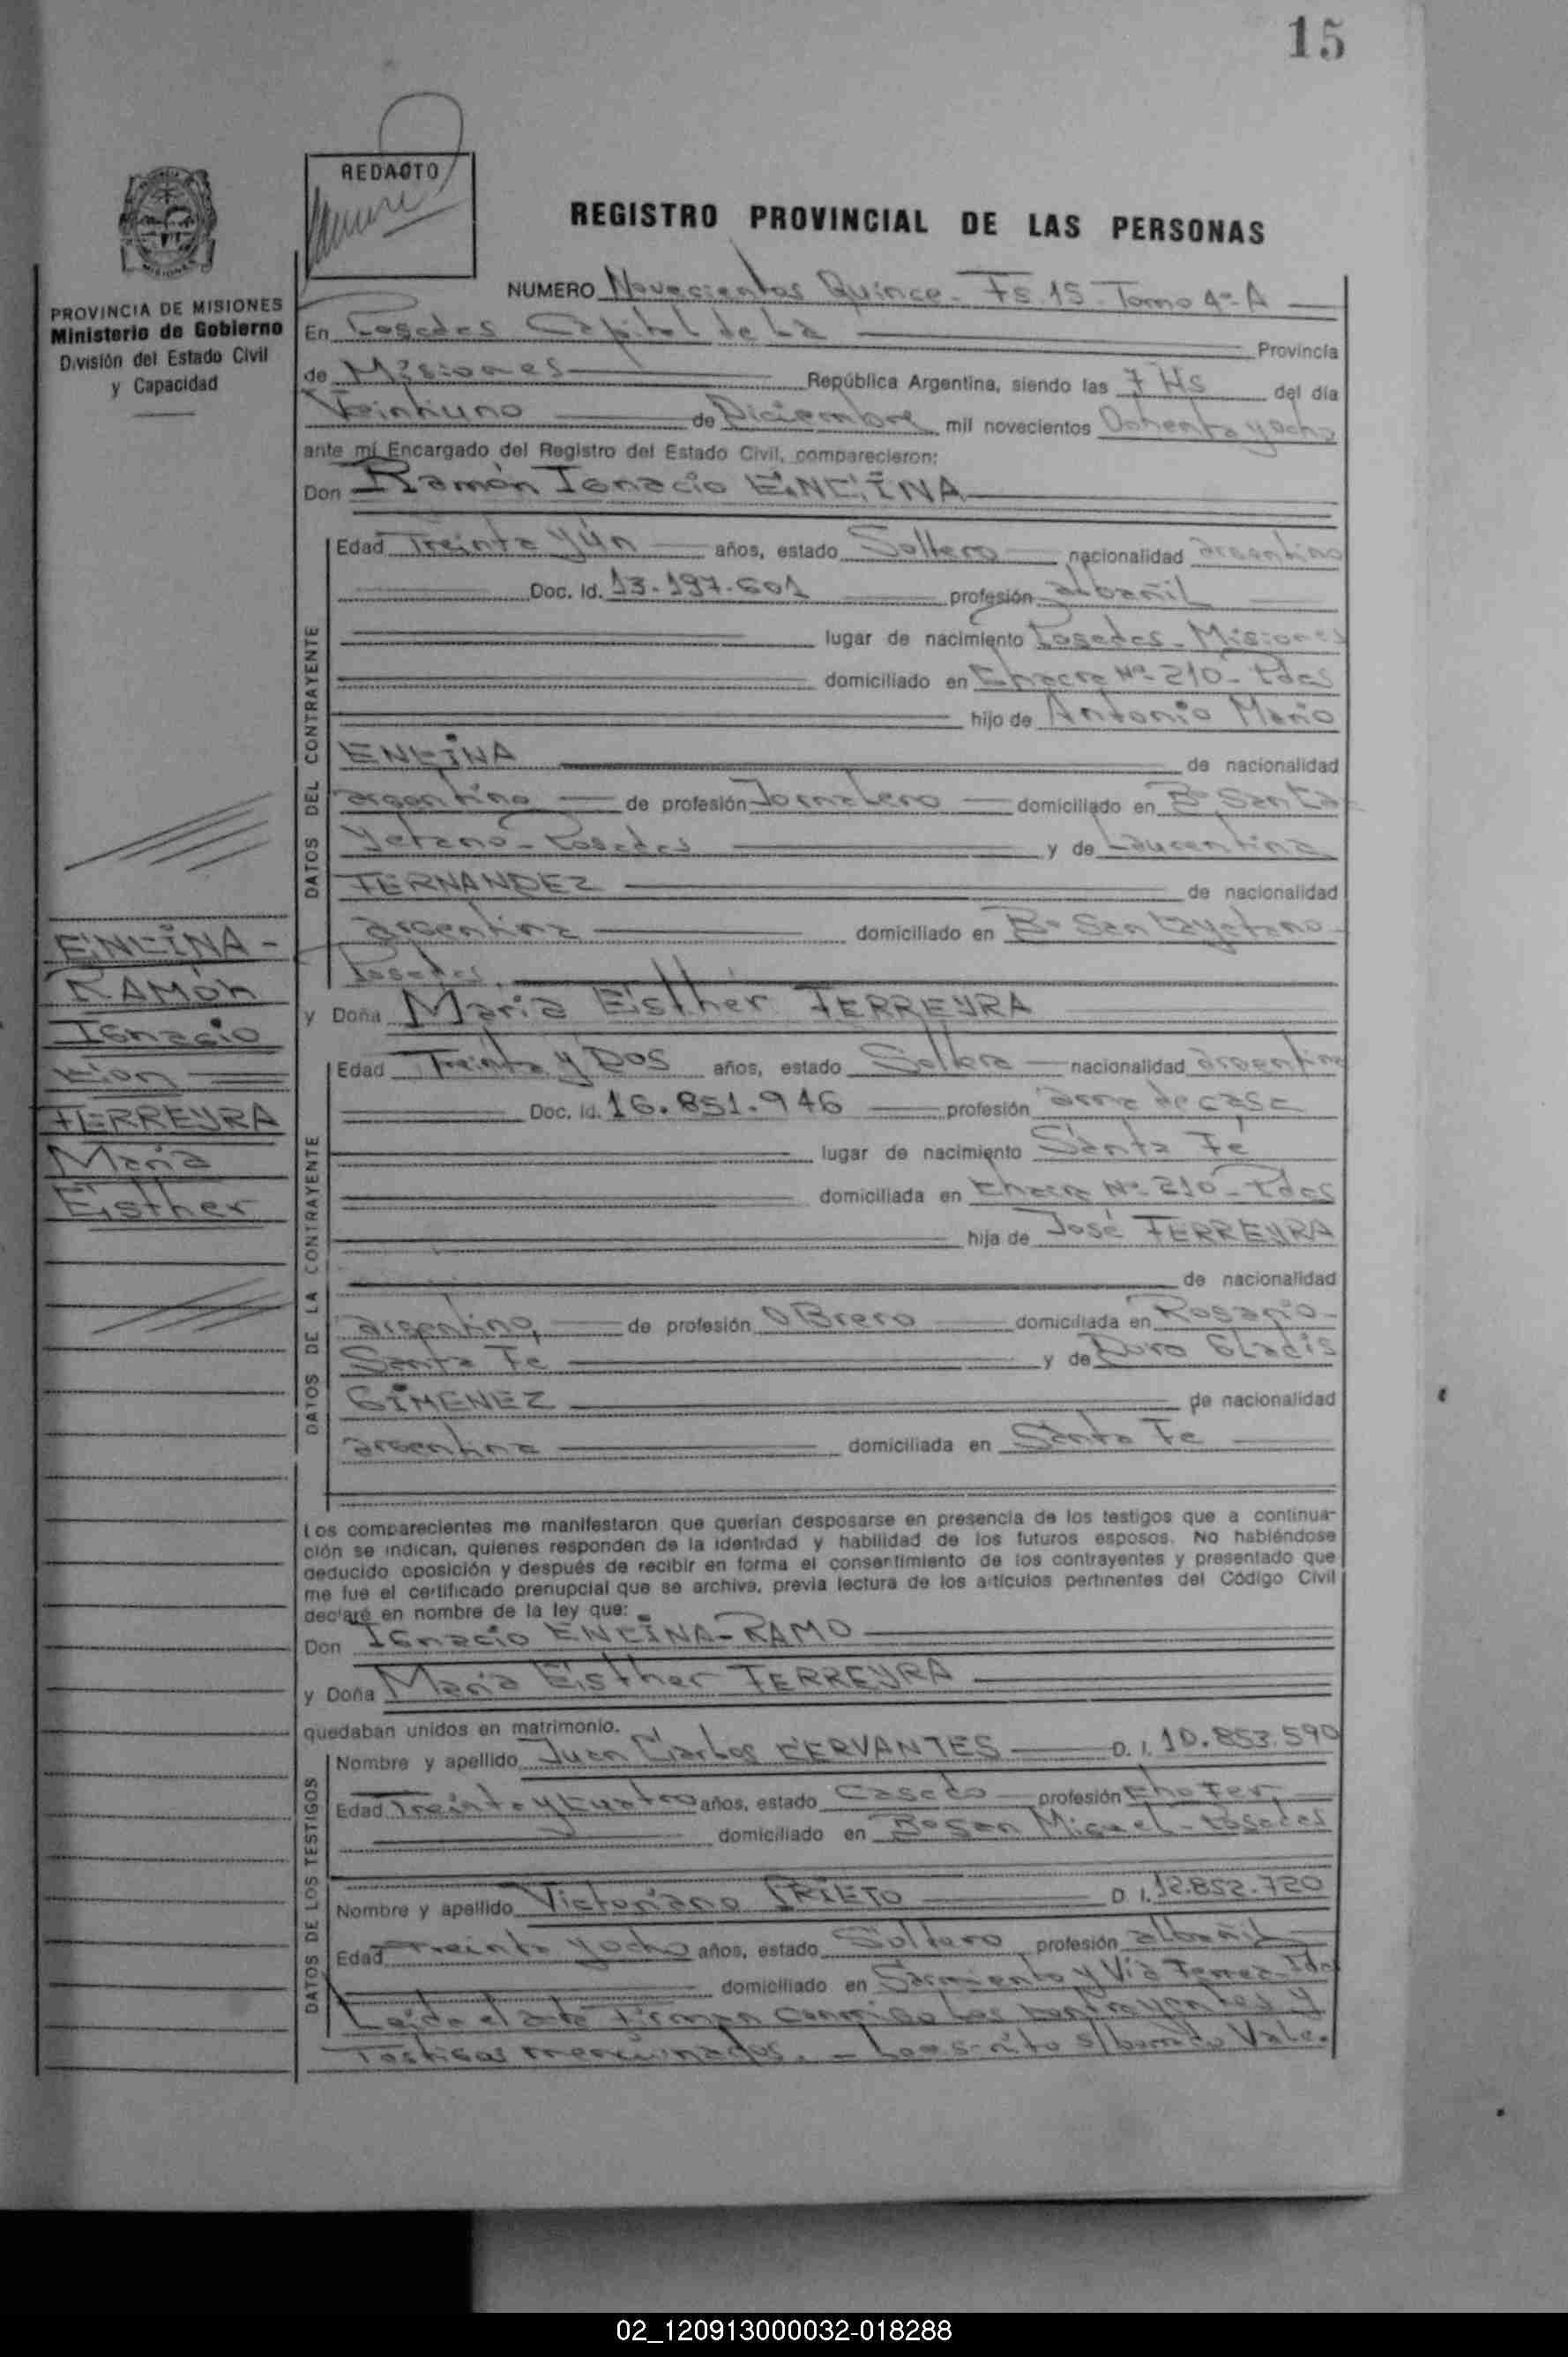 15
REDACTO
REGISTRO PROVINCIAL DE LAS PERSONAS
PROVINCIA DE MISIONES
Ministerio de Gobierno
División del Estado Civil
y Capacidad
NUMERO Novecientos Quince - Fs 15 - Tomo 4º - A
En Posadas Capital de La Provincia
de Misiones República Argentina, siendo las 7 Hs del día
Veintiuno de Diciembre mil novecientos Ochenta y ocho
ante mí Encargado del Registro del Estado Civil, comparecieron:
Don Ramón Ignacio ENCINA
DATOS DEL CONTRAYENTE
Edad Treinta y Un años, estado Soltero nacionalidad argentino
Doc. Id. 13.197.601 profesión albañil
lugar de nacimiento Posadas - Misiones
domiciliado en Chacra Nº 210 - Pdas
hijo de Antonio Mario
ENCINA de nacionalidad
argentino de profesión Jornalero domiciliado en Bº
Posadas y de Laurentina
FERNANDEZ de nacionalidad
argentina domiciliado en Bº San Cayetano
Posadas
ENCINA -
RAMÓN
Ignacio
con
FERREYRA
María
Esther
y Doña María Esther FERREYRA
DATOS DE LA CONTRAYENTE
Edad Treinta y Dos años, estado Soltera nacionalidad argentina
Doc. Id. 16.851.946 profesión ama de casa
lugar de nacimiento Santa Fé
domiciliada en Chacra Nº 210 - Pdas
hija de José FERREYRA
de nacionalidad
argentino, de profesión OBrero domiciliada en Rosario -
Santa Fe y de Gladis
GIMENEZ de nacionalidad
argentina domiciliada en Santa Fe
Los comparecientes me manifestaron que querían desposarse en presencia de los testigos que a continua-
ción se indican, quienes responden de la identidad y habilidad de los futuros esposos. No habiéndose
deducido oposición y después de recibir en forma el consentimiento de los contrayentes y presentado que
me fue el certificado prenupcial que se archiva, previa lectura de los artículos pertinentes del Código Civil
declaré en nombre de la ley que:
Don Ignacio ENCINA - RAMO
y Doña María Esther FERREYRA
quedaban unidos en matrimonio.
DATOS DE LOS TESTIGOS
Nombre y apellido Juan Carlos CERVANTES D. I. 10.853.590
Edad Treinta y Cuatro años, estado Casado profesión Chofer
domiciliado en Bº San Miguel - Posadas
Nombre y apellido Victoriano PRIETO D. I. 12.852.720
Edad Treinta y ocho años, estado Soltero profesión albañil
domiciliado en Sarmiento y Vía Ferrea
Leida el acta Firman conmigo Los contrayentes y
Testigos mencionados. - Lo escrito s/borrado Vale.
02_120913000032-018288